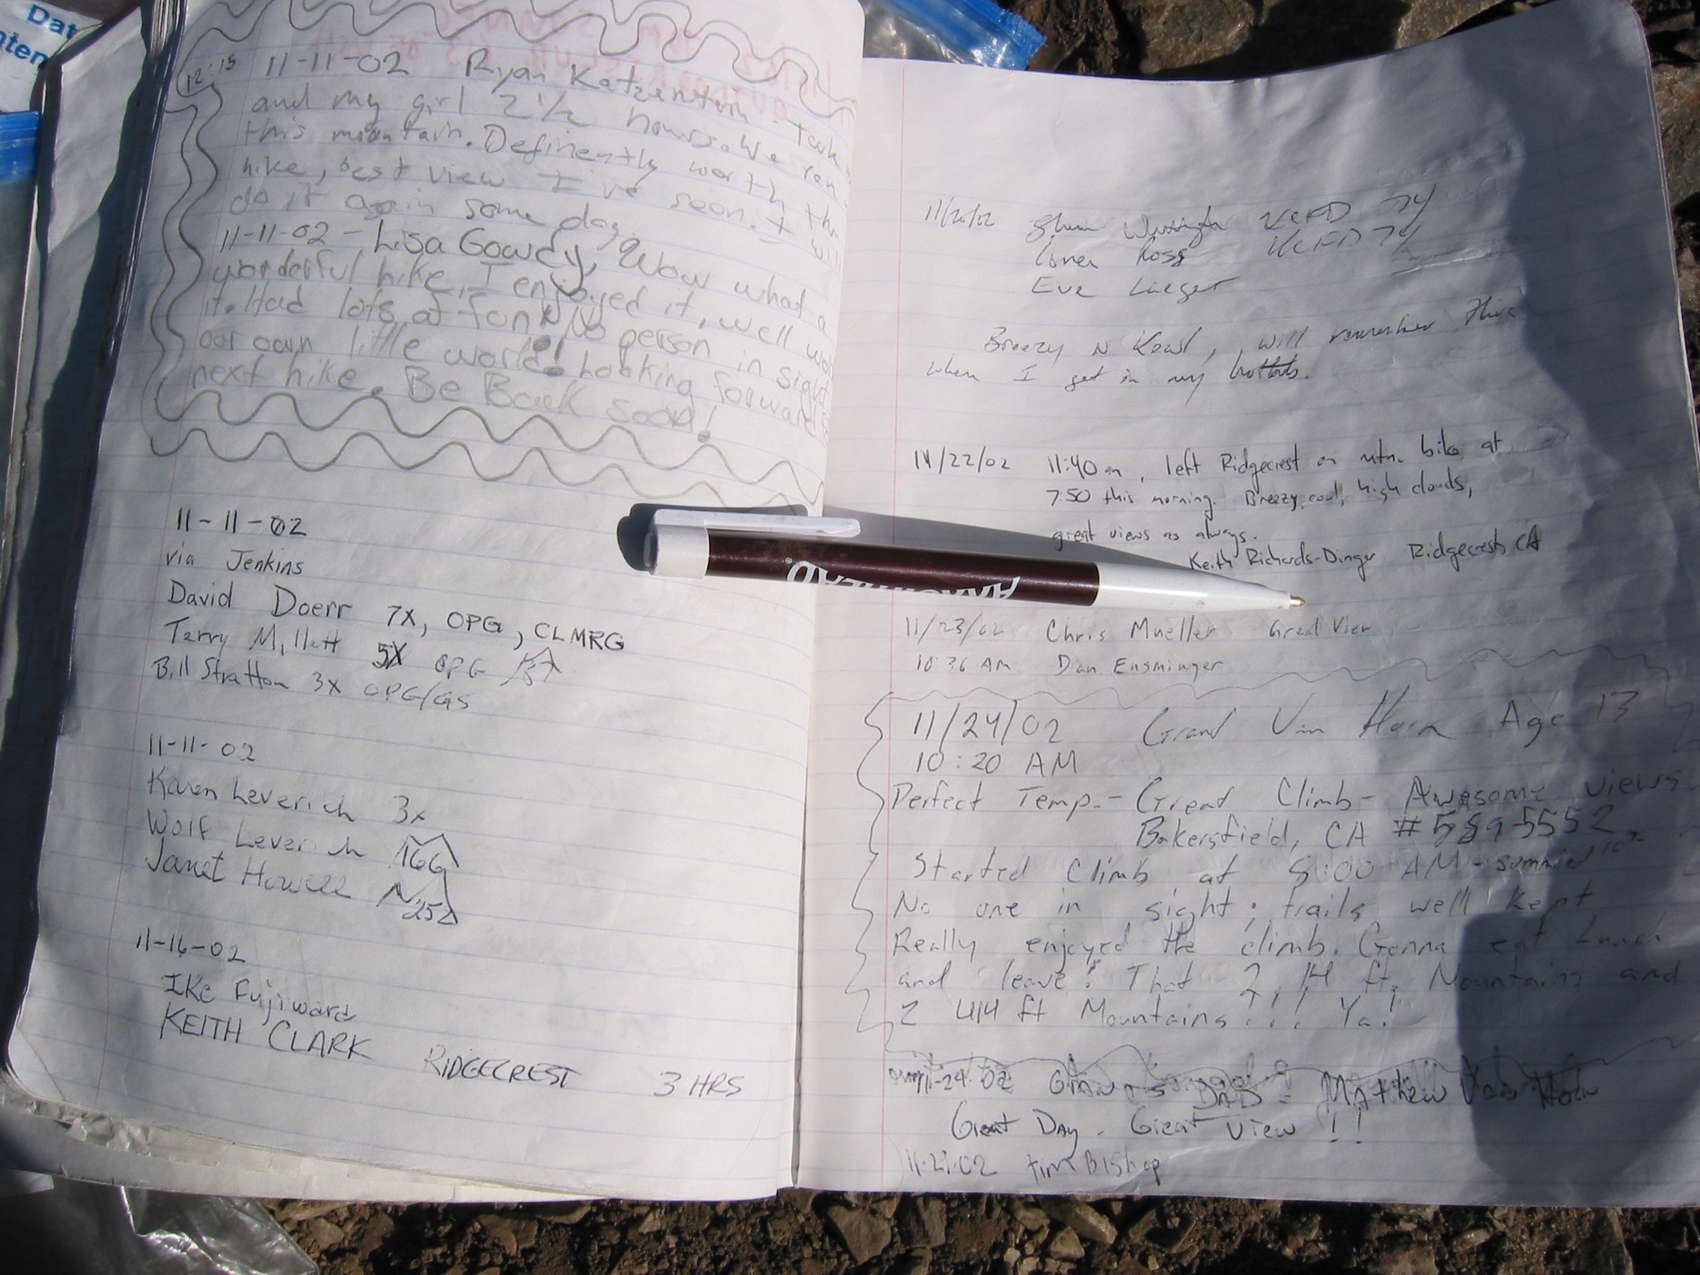 Dat
12:15 11-11-02 Ryan Took
and my girl 2 1/2 hours. We ran
this mountain. Definently worth the
hike, best view I've seen. I will
do it again some day.
11-11-02 - Lisa Gowdy, Wow what a
wonderful hike, I enjoyed it, well
it. Had lots at fun No person in sight
our own little world! Looking forward
next hike. Be Back soon!
11-11-02
via Jenkins
David Doerr 7X, OPG, CLMRG
Terry Millett 5X OPG
Bill Stratton 3x OPG/GS
11-11-02
Karen Leverich 3x
Wolf Leverich 166
Janet Howell 252
11-16-02
Ike Fujiward
KEITH CLARK RIDGECREST 3 HRS
KCFD 74
Ross KCFD 74
Eve
Breezy n Kowl, will remember this
when I get in my
11/22/02 11:40 am, left Ridgecrest on mtn. bike at
7:50 this morning. Breezy, cool, high clouds,
great views as always.
Keith Richards-Dinger Ridgecrest, CA
11/23/02 Chris Mueller Great View
10:36 AM Dan Ensminger
11/24/02 Grant Van Horn Age 13
10:20 AM
Perfect Temp. - Great Climb - Awesome views
Bakersfield, CA
Started Climb at 8:00 AM - summied
No one in sight; trails well kept
Really enjoyed the climb. Gonna eat Lunch
and leave! That 2, 14 ft. Mountains and
2 414 ft Mountains!!! Ya!
11-24-02 Grant's DAD - Matthew Van Horn
Great Day. Great View!!
11-27-02 Tim Bishop